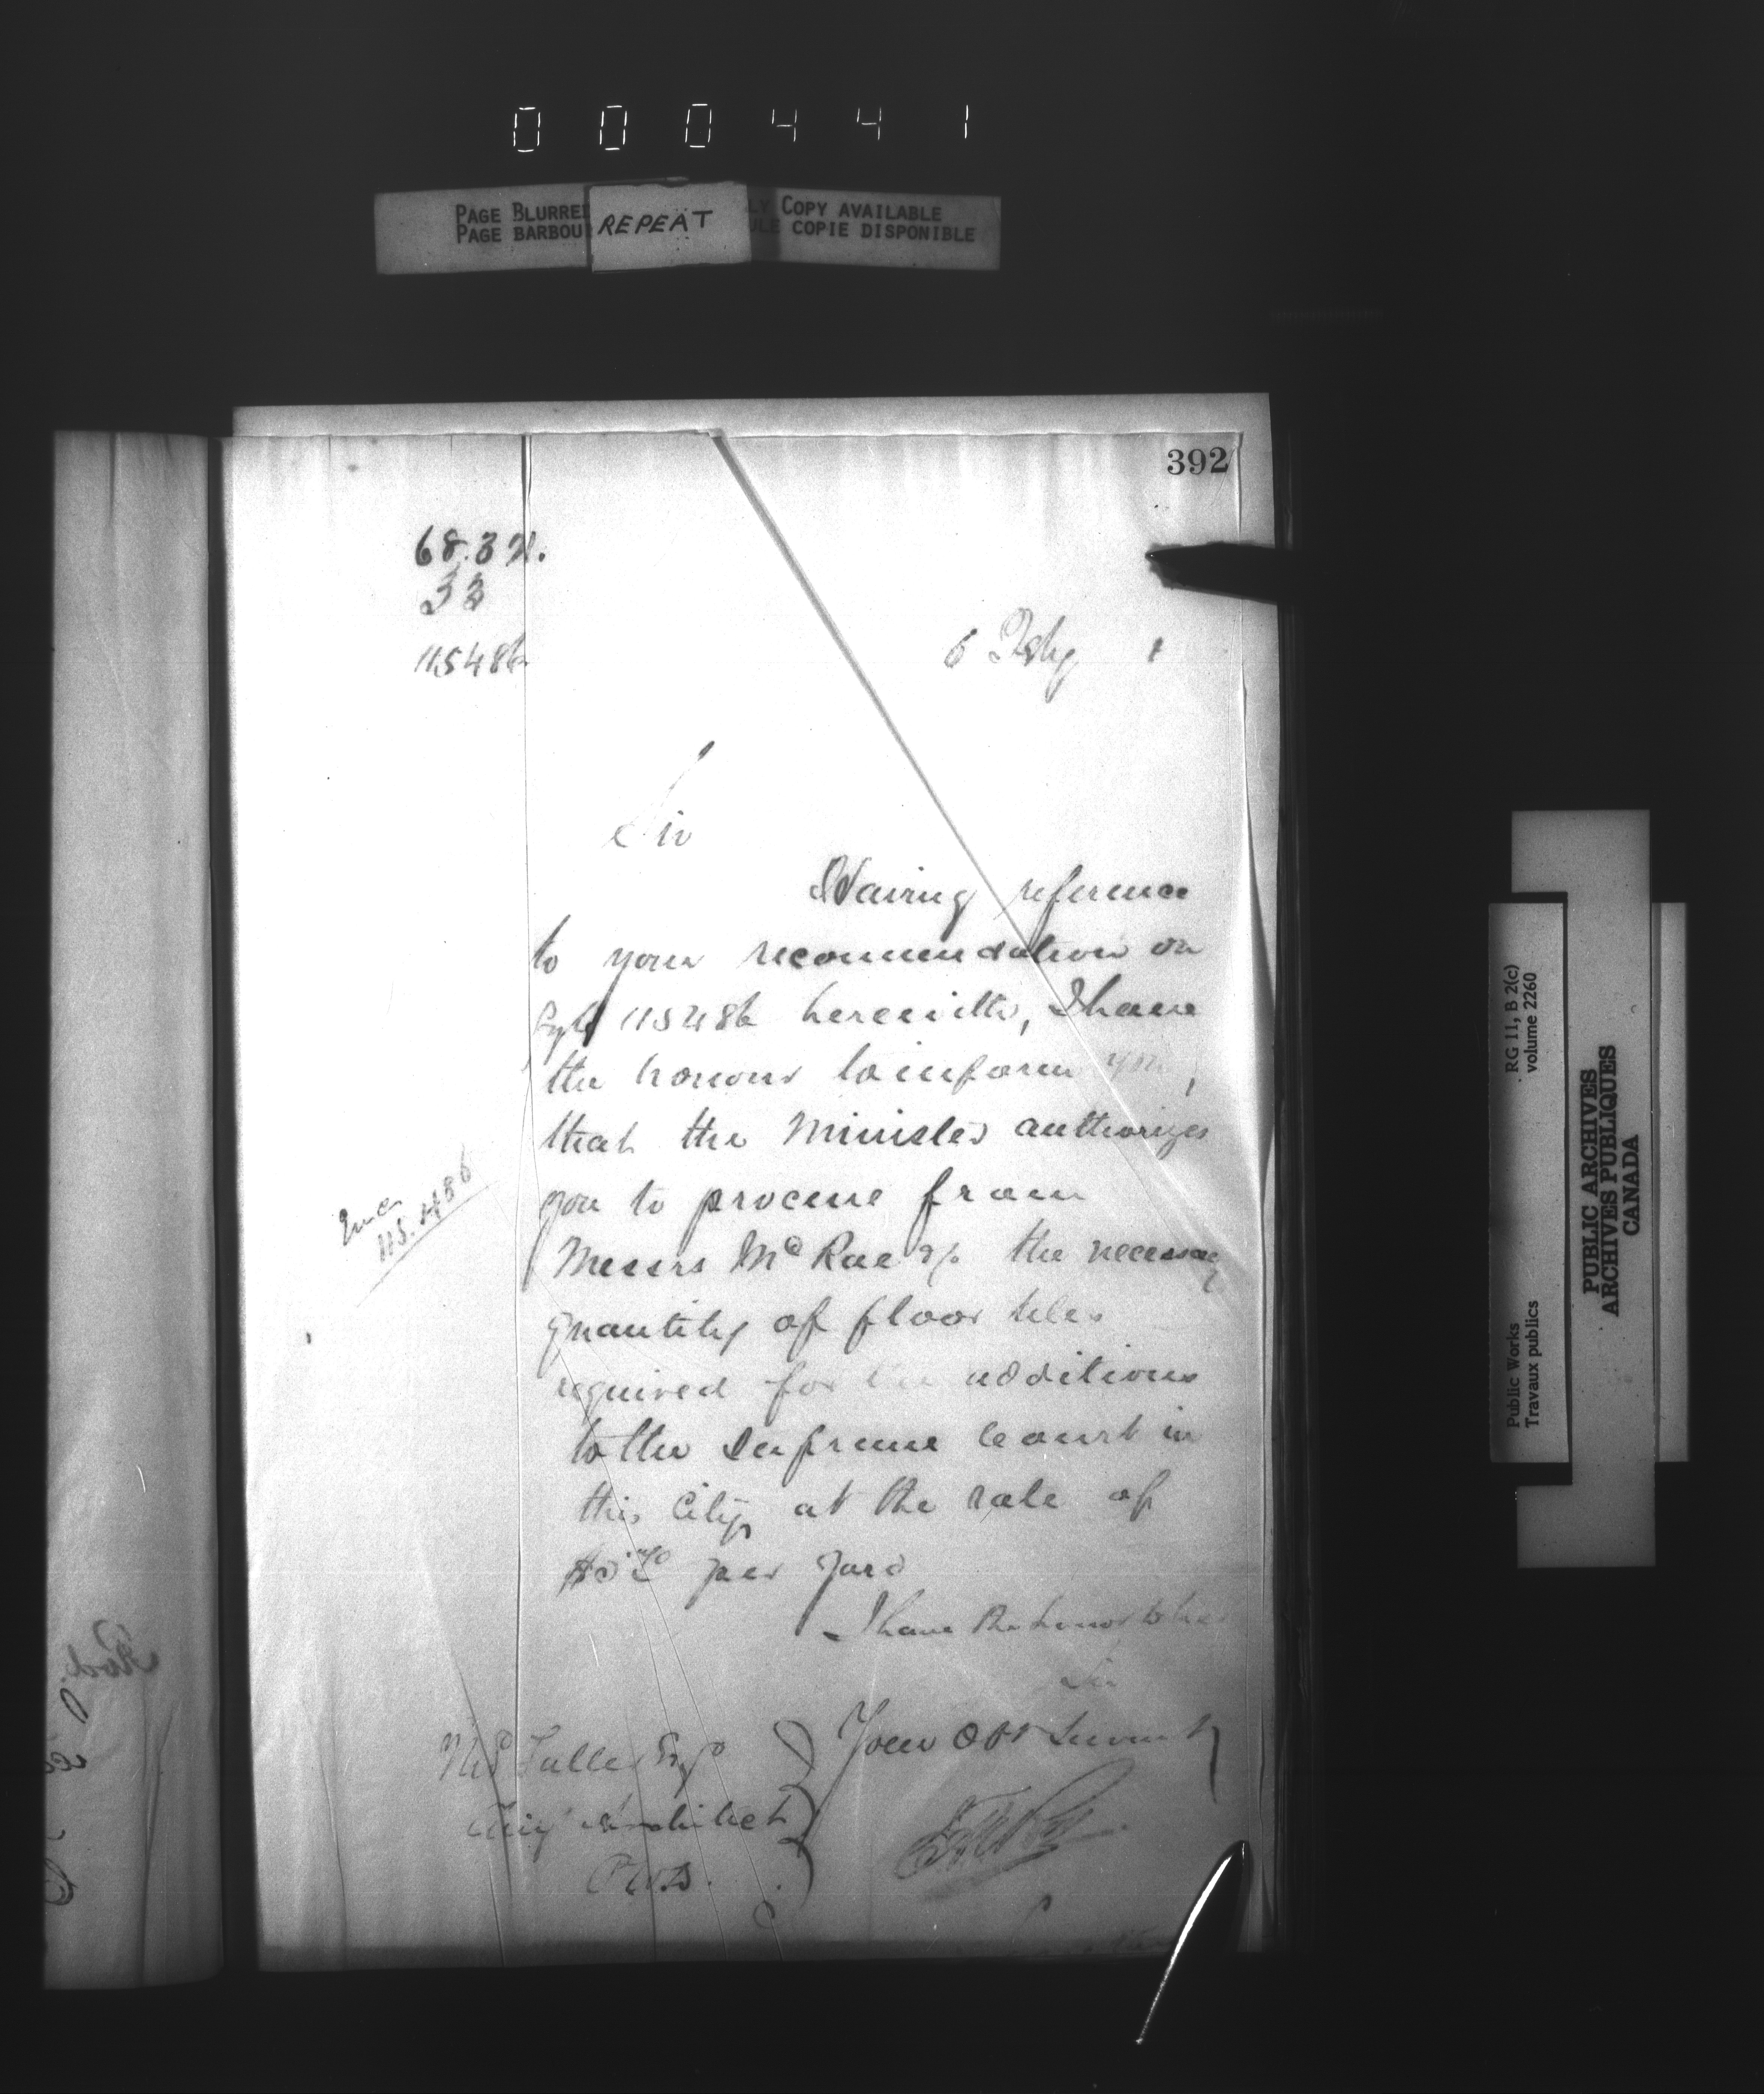 000441
PAGE BLURRED
PAGE BARBOU
REPEAT
LY COPY AVAILABLE
ULE COPIE DISPONIBLE
392
33
115486
6 Feby
Sir
Having reference
to your recommendation on
115486 herewith, I have
the honour to inform you,
that the Minister authorizes
you to procure from
Messrs McRae the necessary
quantity of floor tiles
required for the additions
to the Supreme Court in
this City at the rate of
per yard
I have the honor to be
Sir
Your Obt Servant
Fuller Esq
Chief Architect
P.W.D.
115.486
RG 11, B 2(c)
volume 2260
Public Works
Travaux publics
PUBLIC ARCHIVES
ARCHIVES PUBLIQUES
CANADA